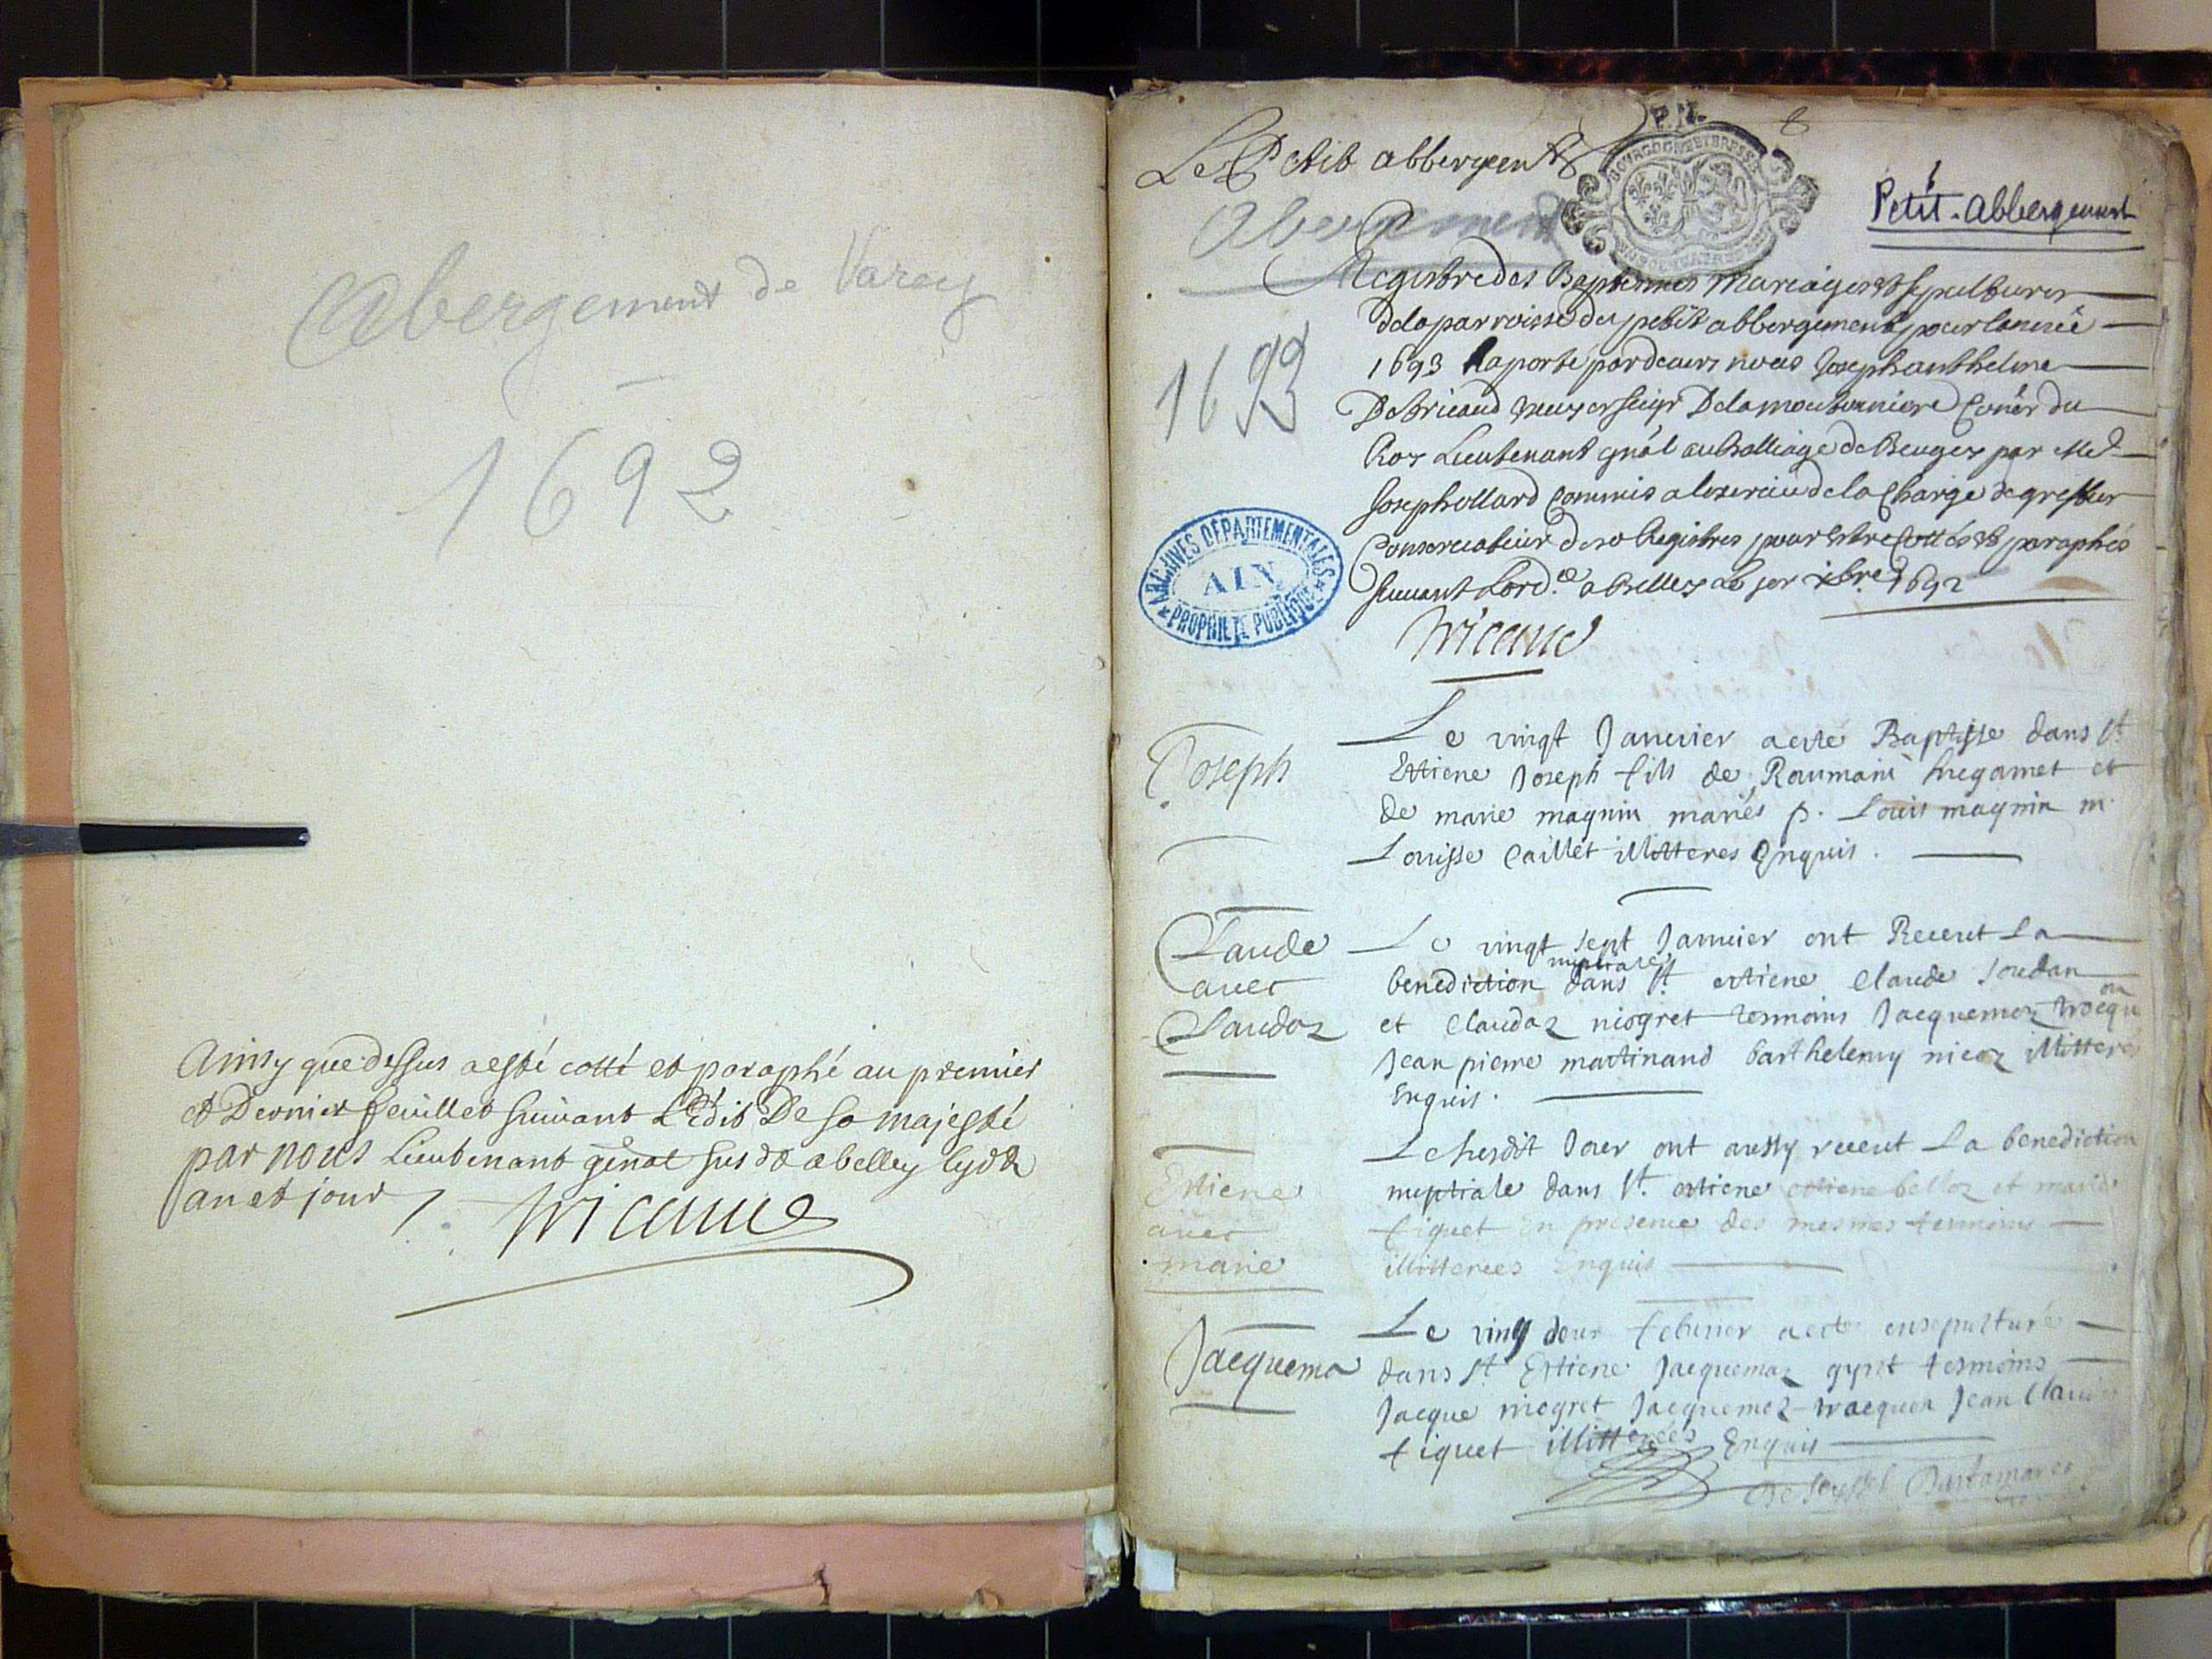 Abergement de Varey
1692
Ainsy que dessus a esté cotté et paraphé au premier
et Dernier feuillet suivant L'Edit De sa majesté
par nous Lieutenant genal susdt a belley lesdt
an et jour
Tricaud
Le Petit abbergent
P.N.
BOURGOGNE ET BRESSE
Petit-abbergement
Abergement
1693
Registre des Baptesmes Mariages et sepultures
dela parroisse du petit abbergement pour lannée
1693 Raporté pardevers nous Joseph Anthelme
De Tricaud
Roy Lieutenant gnâl au Balliage de Beugey par Me
Joseph ollard Commis a lexercice de la Charge de greffier
Conservateur deso Registres pour estre Cottés et paraphés
suivant Lord.ce a Belley Le jer xbre 1692
Tricaud
ARCHIVES DÉPARTEMENTALES
AIN
PROPRIÉTÉ PUBLIQUE
Joseph
Le vingt Janvier a esté Baptisse dans st
Estiene Joseph fils de Roumain et
de marie magnin mariés p. Louis magnin m.
Louisse Caillet illitteres Enquis.
Claude
avec
Claudaz
Le vingt sept Janvier ont Receut La
nuptiale
benediction dans st estiene Claude Joudan
et Claudaz niogret tesmoins Jacquemoz
Jean pierre martinand barthelemy nicoz illitteres
Enquis.
Estiene
avec
marie
Le susdit Jour ont aussy receut La benediction
nuptiale dans st. estiene estiene belloz et marie
tiquet En presence des mesmes tesmoins
illitterees Enquis
Jacquema
Le vingt deux febvrier a este ensepulturé
dans st Estiene Jacquemaz gynet tesmoins
Jacque niogret Jacquemoz Jean Claude
tiquet illitterées Enquis
De seyssel